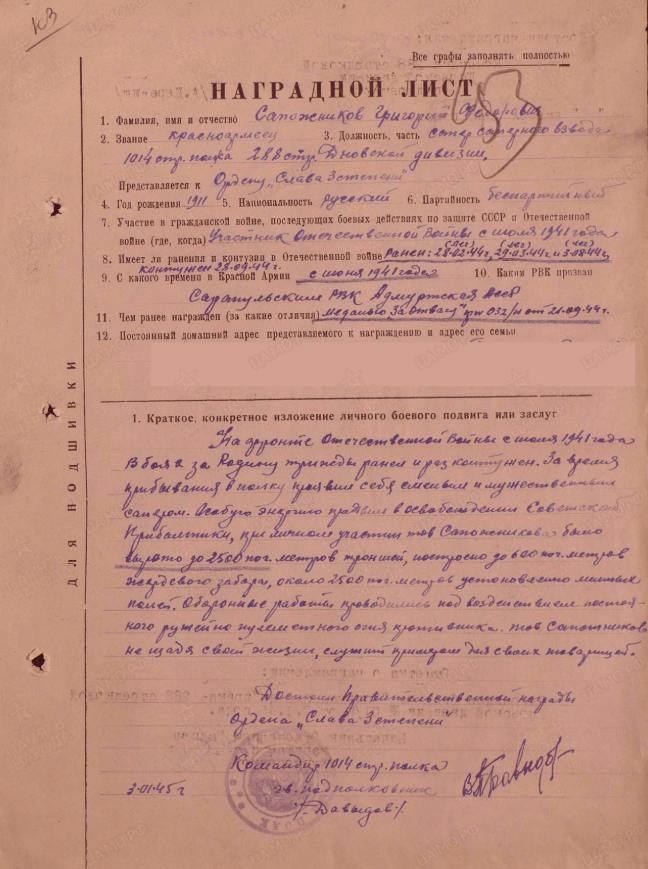 КЗ
Все графы заполнять полностью
НАГРАДНОЙ ЛИСТ
1. Фамилия, имя и отчество Сапожников Григорий Федорович
2. Звание красноармеец 3. Должность, часть сапер саперного взвода
1014 стр. полка 288 стр. Дновской дивизии
Представляется к Ордену „Слава 3 степени"
4. Год рождения 1911 5. Национальность русский 6. Партийность беспартийный
7. Участие в гражданской войне, последующих боевых действиях по защите СССР и Отечественной
войне (где, когда) Участник Отечественной Войны с июля 1941 года
8. Имеет ли ранения и контузии в Отечественной войне Ранен: 28.02.44г. (лег) 29.03.44г. (лег) и 3.08.44г. (лег)
контужен 28.09.44г.
9. С какого времени в Красной Армии с июня 1941 года 10. Каким РВК призван
Сарапульским РВК Адмуртская Асср
11. Чем ранее награжден (за какие отличия) медалью „За отвагу" пр 032/н от 21.09.44г.
12. Постоянный домашний адрес представляемого к награждению и адрес его семьи
ДЛЯ ПОДШИВКИ
1. Краткое, конкретное изложение личного боевого подвига или заслуг
На фронте Отечественной Войны с июля 1941 года
В боях за Родину трижды ранен и раз контужен. За время
прибывания в полку проявил себя смелым и мужественным
сапером. Особую энергию проявил в освобождении Советской
Прибалтики, при личном участии тов Сапожникова было
вырыто до 2500 пог. метров траншей, построено до 600 пог. метров
жердевого забора, около 2500 пог. метров установлено минных
полей. Оборонные работы проводились под воздействием постоя-
ного ружейно пулеметного огня противника. тов Сапожников
не щадя своей жизни, служит примером для своих товарищей.
Достоин Правительственной награды
Ордена „Слава 3 степени"
Командир 1014 стр. полка
гв. подполковник
/-Давыдов-/
3.01.45г